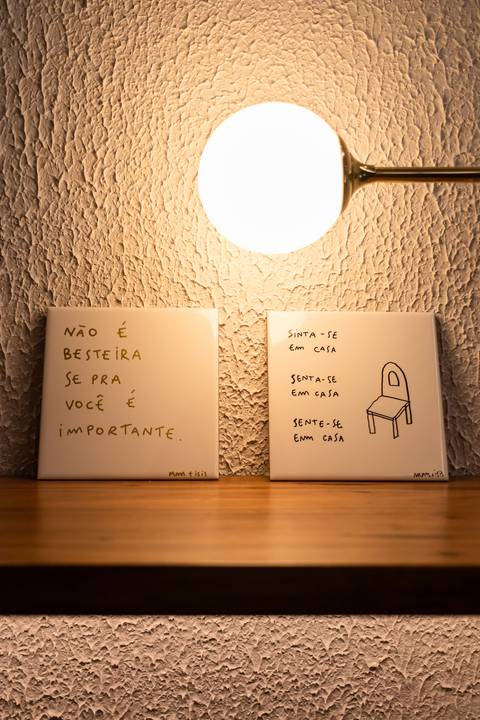 NÃO É
BESTEIRA
SE PRA
VOCÊ É
iMPORTANTE.
SiNTA-SE
Em CASA
SENTA-SE
Em CASA
SENTE-SE
Em CASA